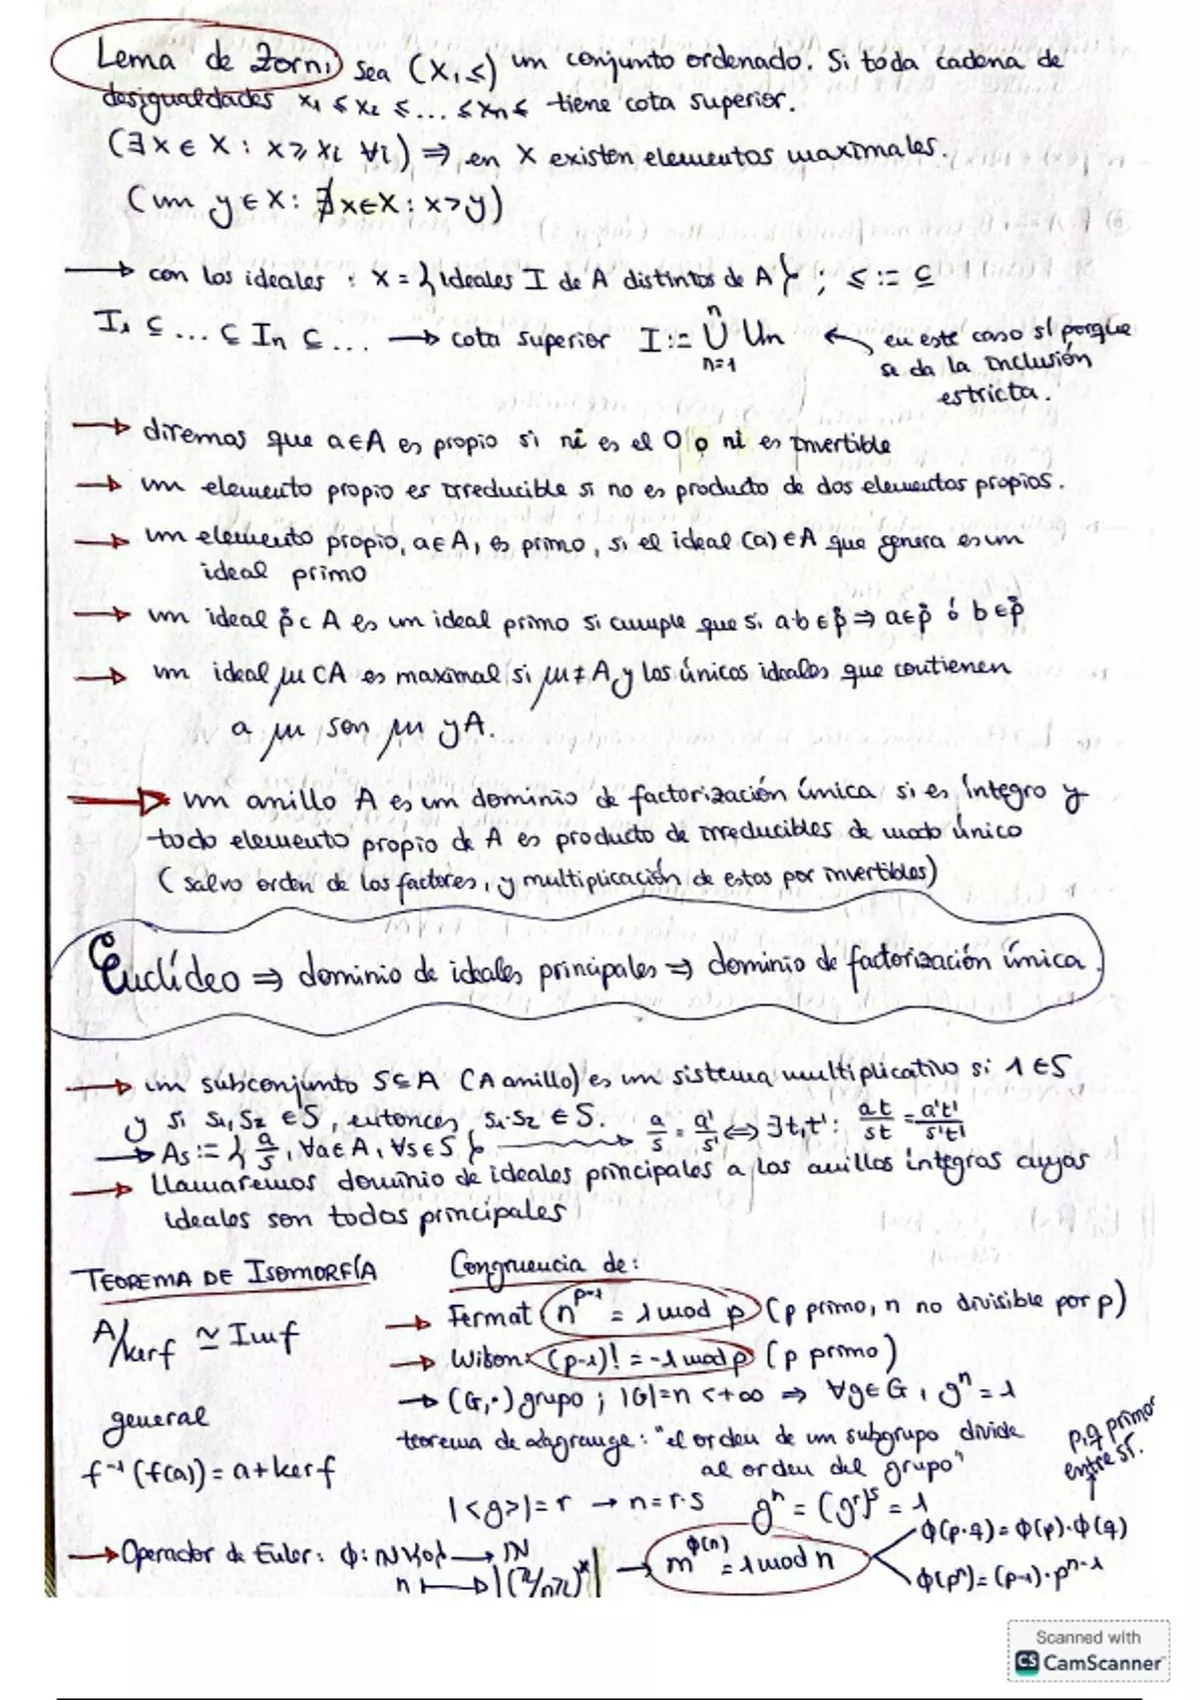 Lema de Zorn, sea (X, ≤) un conjunto ordenado. Si toda cadena de
desigualdades x₁ ≤ x₂ ≤ ... ≤ xn ≤ tiene cota superior.
(∃x ∈ X : x ≥ xi ∀i) ⇒ en X existen elementos maximales.
(un y ∈ X : ∄x∈X : x>y)
→ con los ideales : X = { ideales I de A distintos de A } ; ≤ := ⊆
I₁ ⊆ ... ⊆ In ⊆ ... → cota superior I := ⋃ⁿₙ₌₁ Un ← en este caso sí porque
se da la inclusión
estricta.
→ diremos que a∈A es propio si ni es el 0 o ni es invertible
→ un elemento propio es irreducible si no es producto de dos elementos propios.
→ un elemento propio, a∈A, es primo, si el ideal (a)∈A que genera es un
ideal primo
→ un ideal p ⊂ A es un ideal primo si cumple que si a·b ∈ p ⇒ a∈p ó b∈p
→ un ideal m ⊂ A es maximal si m ≠ A y los únicos ideales que contienen
a m son m y A.
→ un anillo A es un dominio de factorización única si es íntegro y
todo elemento propio de A es producto de irreducibles de modo único
(salvo orden de los factores, y multiplicación de estos por invertibles)
Euclídeo ⇒ dominio de ideales principales ⇒ dominio de factorización única.
→ un subconjunto S⊆A (A anillo) es un sistema multiplicativo si 1 ∈ S
y si s₁, s₂ ∈ S, entonces s₁·s₂ ∈ S. a/s = a'/s' ⇔ ∃t,t' : at/st = a't'/s't'
→ As := { a/s, ∀a∈A, ∀s∈S }
→ Llamaremos dominio de ideales principales a los anillos íntegros cuyos
ideales son todos principales
TEOREMA DE ISOMORFÍA
A/kerf ≃ Imf
general
f⁻¹(f(a)) = a + kerf
Congruencia de:
→ Fermat n^(p-1) = 1 mod p (p primo, n no divisible por p)
→ Wilson: (p-1)! = -1 mod p (p primo)
→ (G,·) grupo ; |G|=n <+∞ ⇒ ∀g∈G, gⁿ = 1
teorema de lagrange: "el orden de un subgrupo divide
al orden del grupo"
|<g>| = r → n = r·s gⁿ = (gʳ)ˢ = 1
p,q primos
entre sí.
→ Operador de Euler: ϕ: ℕ\{0} → ℕ
n ↦ |(ℤ/nℤ)*| → m^ϕ(n) = 1 mod n
ϕ(p·q) = ϕ(p)·ϕ(q)
ϕ(pⁿ) = (p-1)·pⁿ⁻¹
Scanned with
CS CamScanner